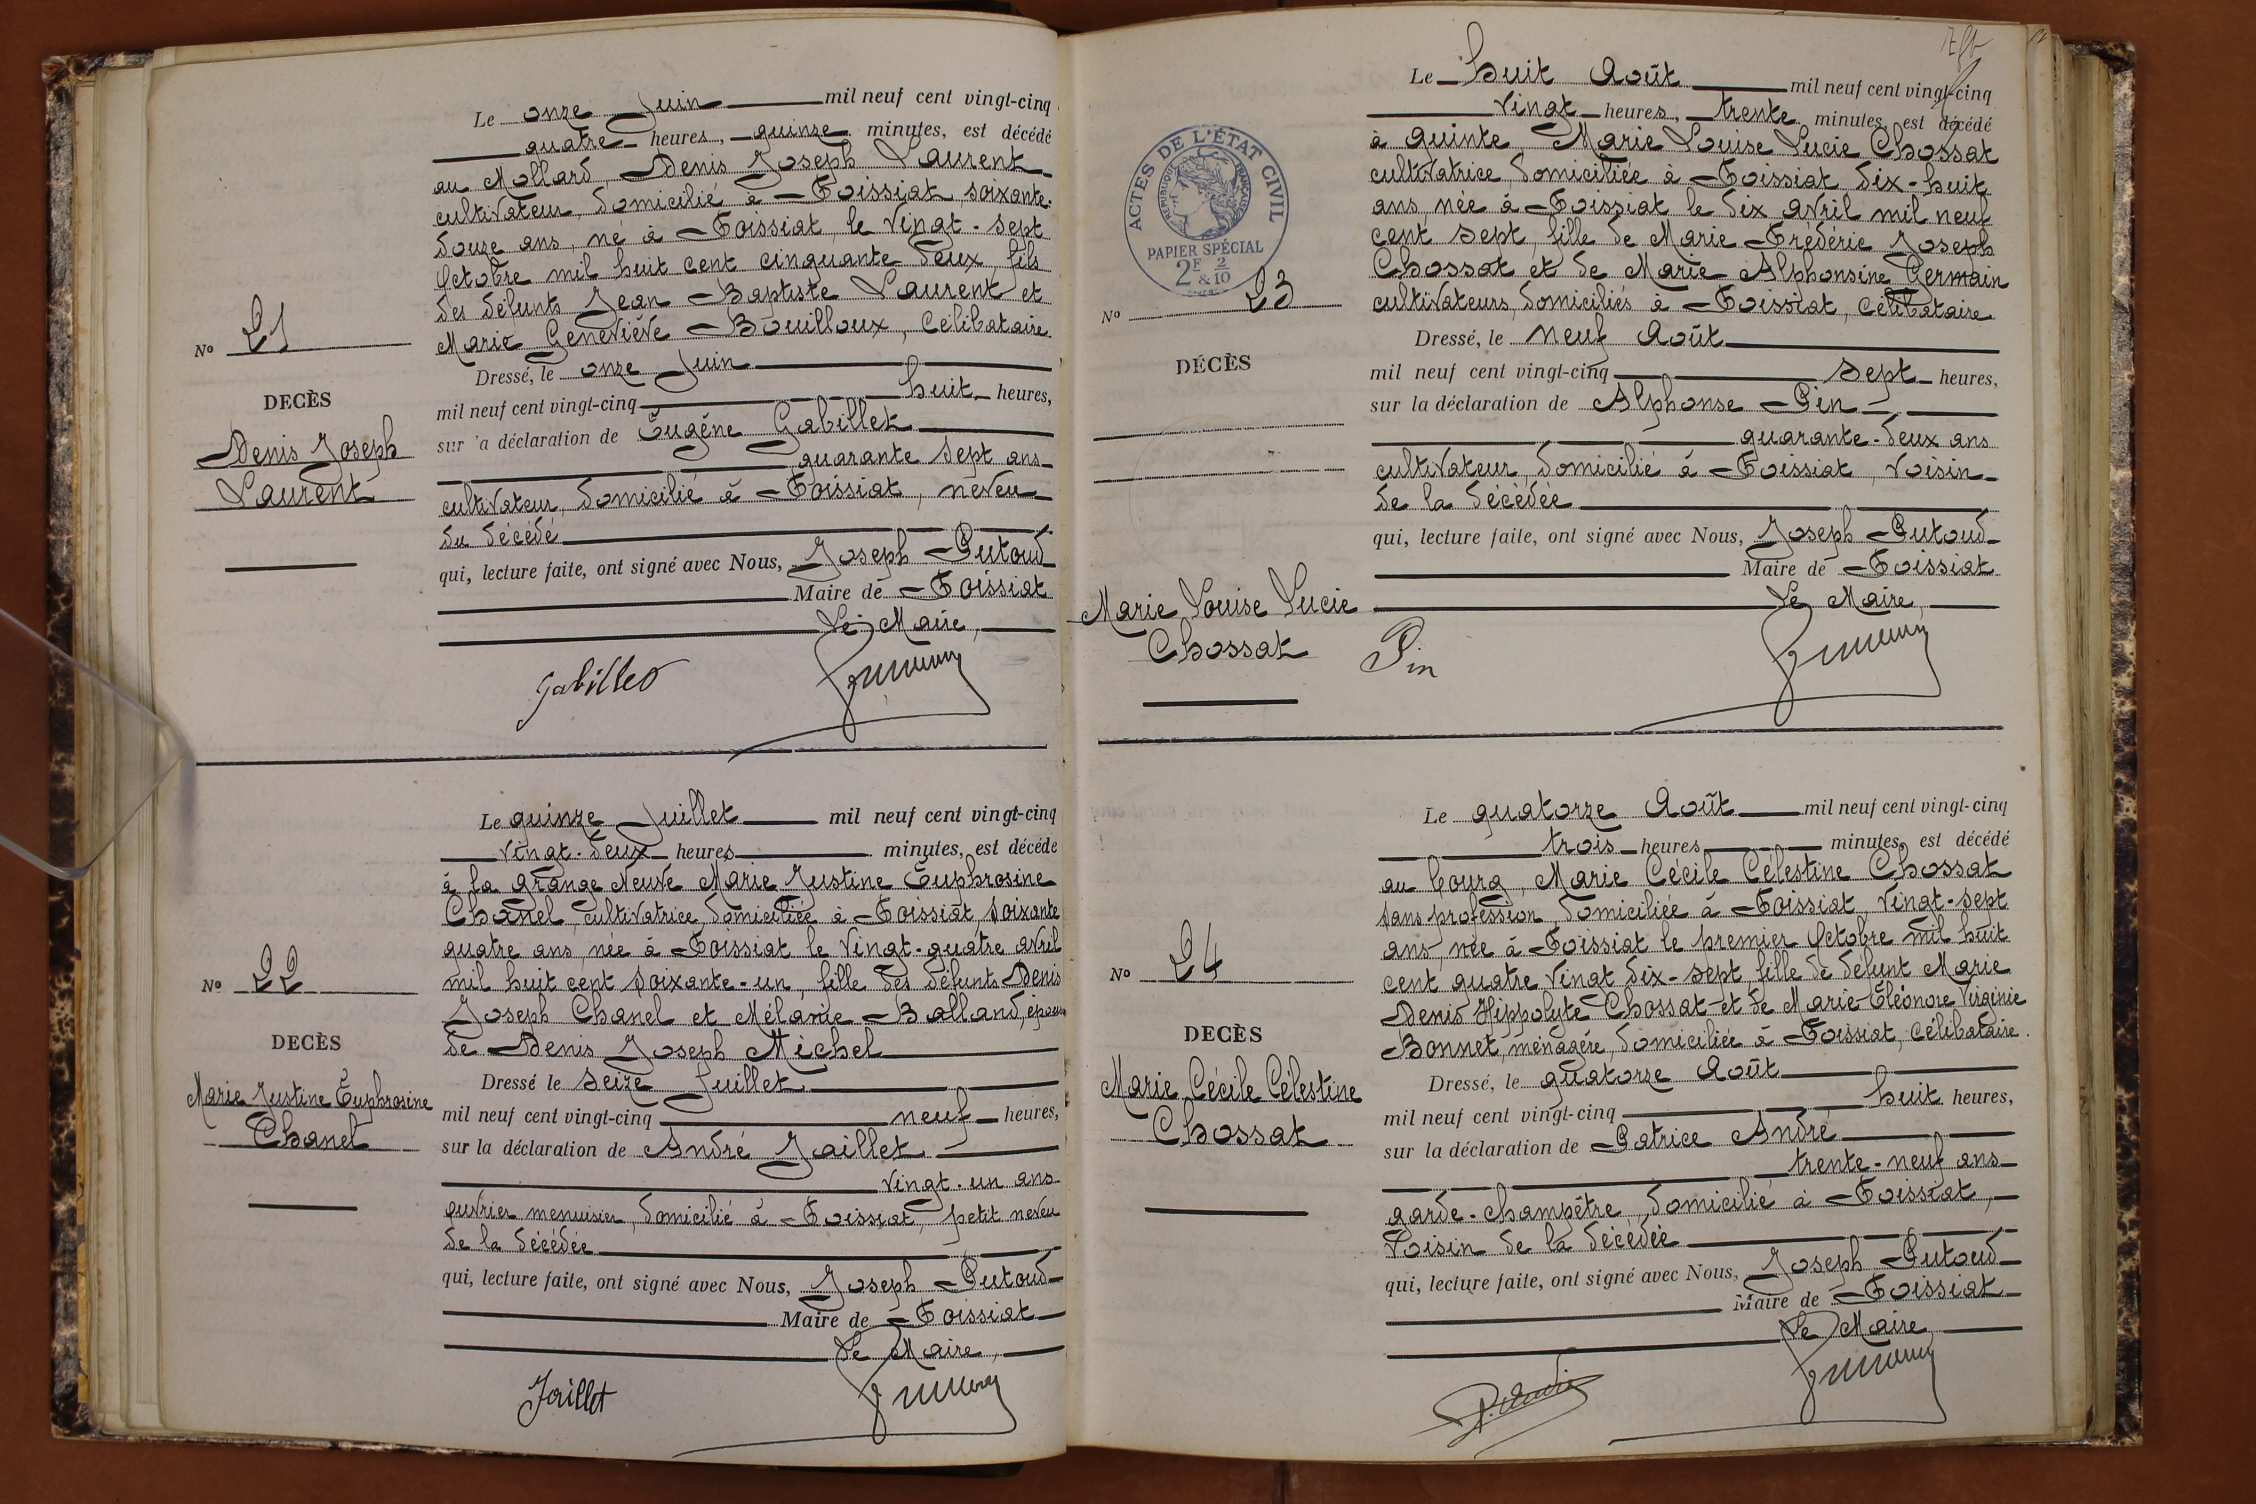 Le onze Juin mil neuf cent vingt-cinq
quatre heures, quinze minutes, est décédé
au Mollard, Denis Joseph Laurent
cultivateur, domicilié à Foissiat, soixante-
douze ans, né à Foissiat, le vingt-sept
Octobre mil huit cent cinquante deux, fils
des défunts Jean Baptiste Laurent et
Marie Geneviève Bouilloux, Célibataire
Dressé, le onze Juin
mil neuf cent vingt-cinq huit heures,
sur la déclaration de Eugène Gabillet
quarante sept ans
cultivateur, domicilié à Foissiat, neveu
du décédé
qui, lecture faite, ont signé avec Nous, Joseph Putoud
Maire de Foissiat
Le Maire,
Nº 21
DECÈS
Denis Joseph
Laurent
Gabillet
Le quinze Juillet mil neuf cent vingt-cinq
vingt-deux heures minutes, est décédé
à la grange Neuve Marie Justine Euphrosine
Chanel, cultivatrice, domiciliée à Foissiat, soixante
quatre ans, née à Foissiat le vingt-quatre avril
mil huit cent soixante-un, fille des défunts Denis
Joseph Chanel et Mélanie Balland, épouse
de Denis Joseph Michel
Dressé le seize Juillet
mil neuf cent vingt-cinq neuf heures,
sur la déclaration de André Jaillet
vingt-un ans
ouvrier menuisier, domicilié à Foissiat, petit neveu
de la décédée
qui, lecture faite, ont signé avec Nous, Joseph Putoud
Maire de Foissiat
Le Maire,
Nº 22
DECÈS
Marie Justine Euphrosine
Chanel
Jaillet
Le huit Août mil neuf cent vingt-cinq
vingt heures, trente minutes, est décédé
à Quinte, Marie Louise Lucie Chossat
cultivatrice, domiciliée à Foissiat, dix-huit
ans, née à Foissiat le dix avril mil neuf
cent sept, fille de Marie Frédéric Joseph
Chossat et de Marie Alphonsine Germain
cultivateurs, domiciliés à Foissiat, célibataire
Dressé, le neuf Août
mil neuf cent vingt-cinq sept heures,
sur la déclaration de Alphonse Pin
quarante-deux ans
cultivateur, domicilié à Foissiat, voisin
de la décédée
qui, lecture faite, ont signé avec Nous, Joseph Putoud
Maire de Foissiat
Le Maire,
ACTES DE L'ÉTAT CIVIL
RÉPUBLIQUE FRANÇAISE
PAPIER SPÉCIAL
2F 2
& 10
Nº 23
DÉCÈS
Marie Louise Lucie
Chossat
Pin
Le quatorze Août mil neuf cent vingt-cinq
trois heures minutes, est décédé
au bourg, Marie Cécile Célestine Chossat
sans profession, domiciliée à Foissiat, vingt-sept
ans, née à Foissiat le premier Octobre mil huit
cent quatre vingt dix-sept, fille de défunt Marie
Denis Hippolyte Chossat et de Marie Eléonore Virginie
Bonnet, ménagère, domiciliée à Foissiat, célibataire.
Dressé, le quatorze Août
mil neuf cent vingt-cinq huit heures,
sur la déclaration de Patrice André
trente-neuf ans
garde-champêtre, domicilié à Foissiat,
voisin de la décédée
qui, lecture faite, ont signé avec Nous, Joseph Putoud
Maire de Foissiat
Le Maire,
Nº 24
DECÈS
Marie Cécile Célestine
Chossat
P. André